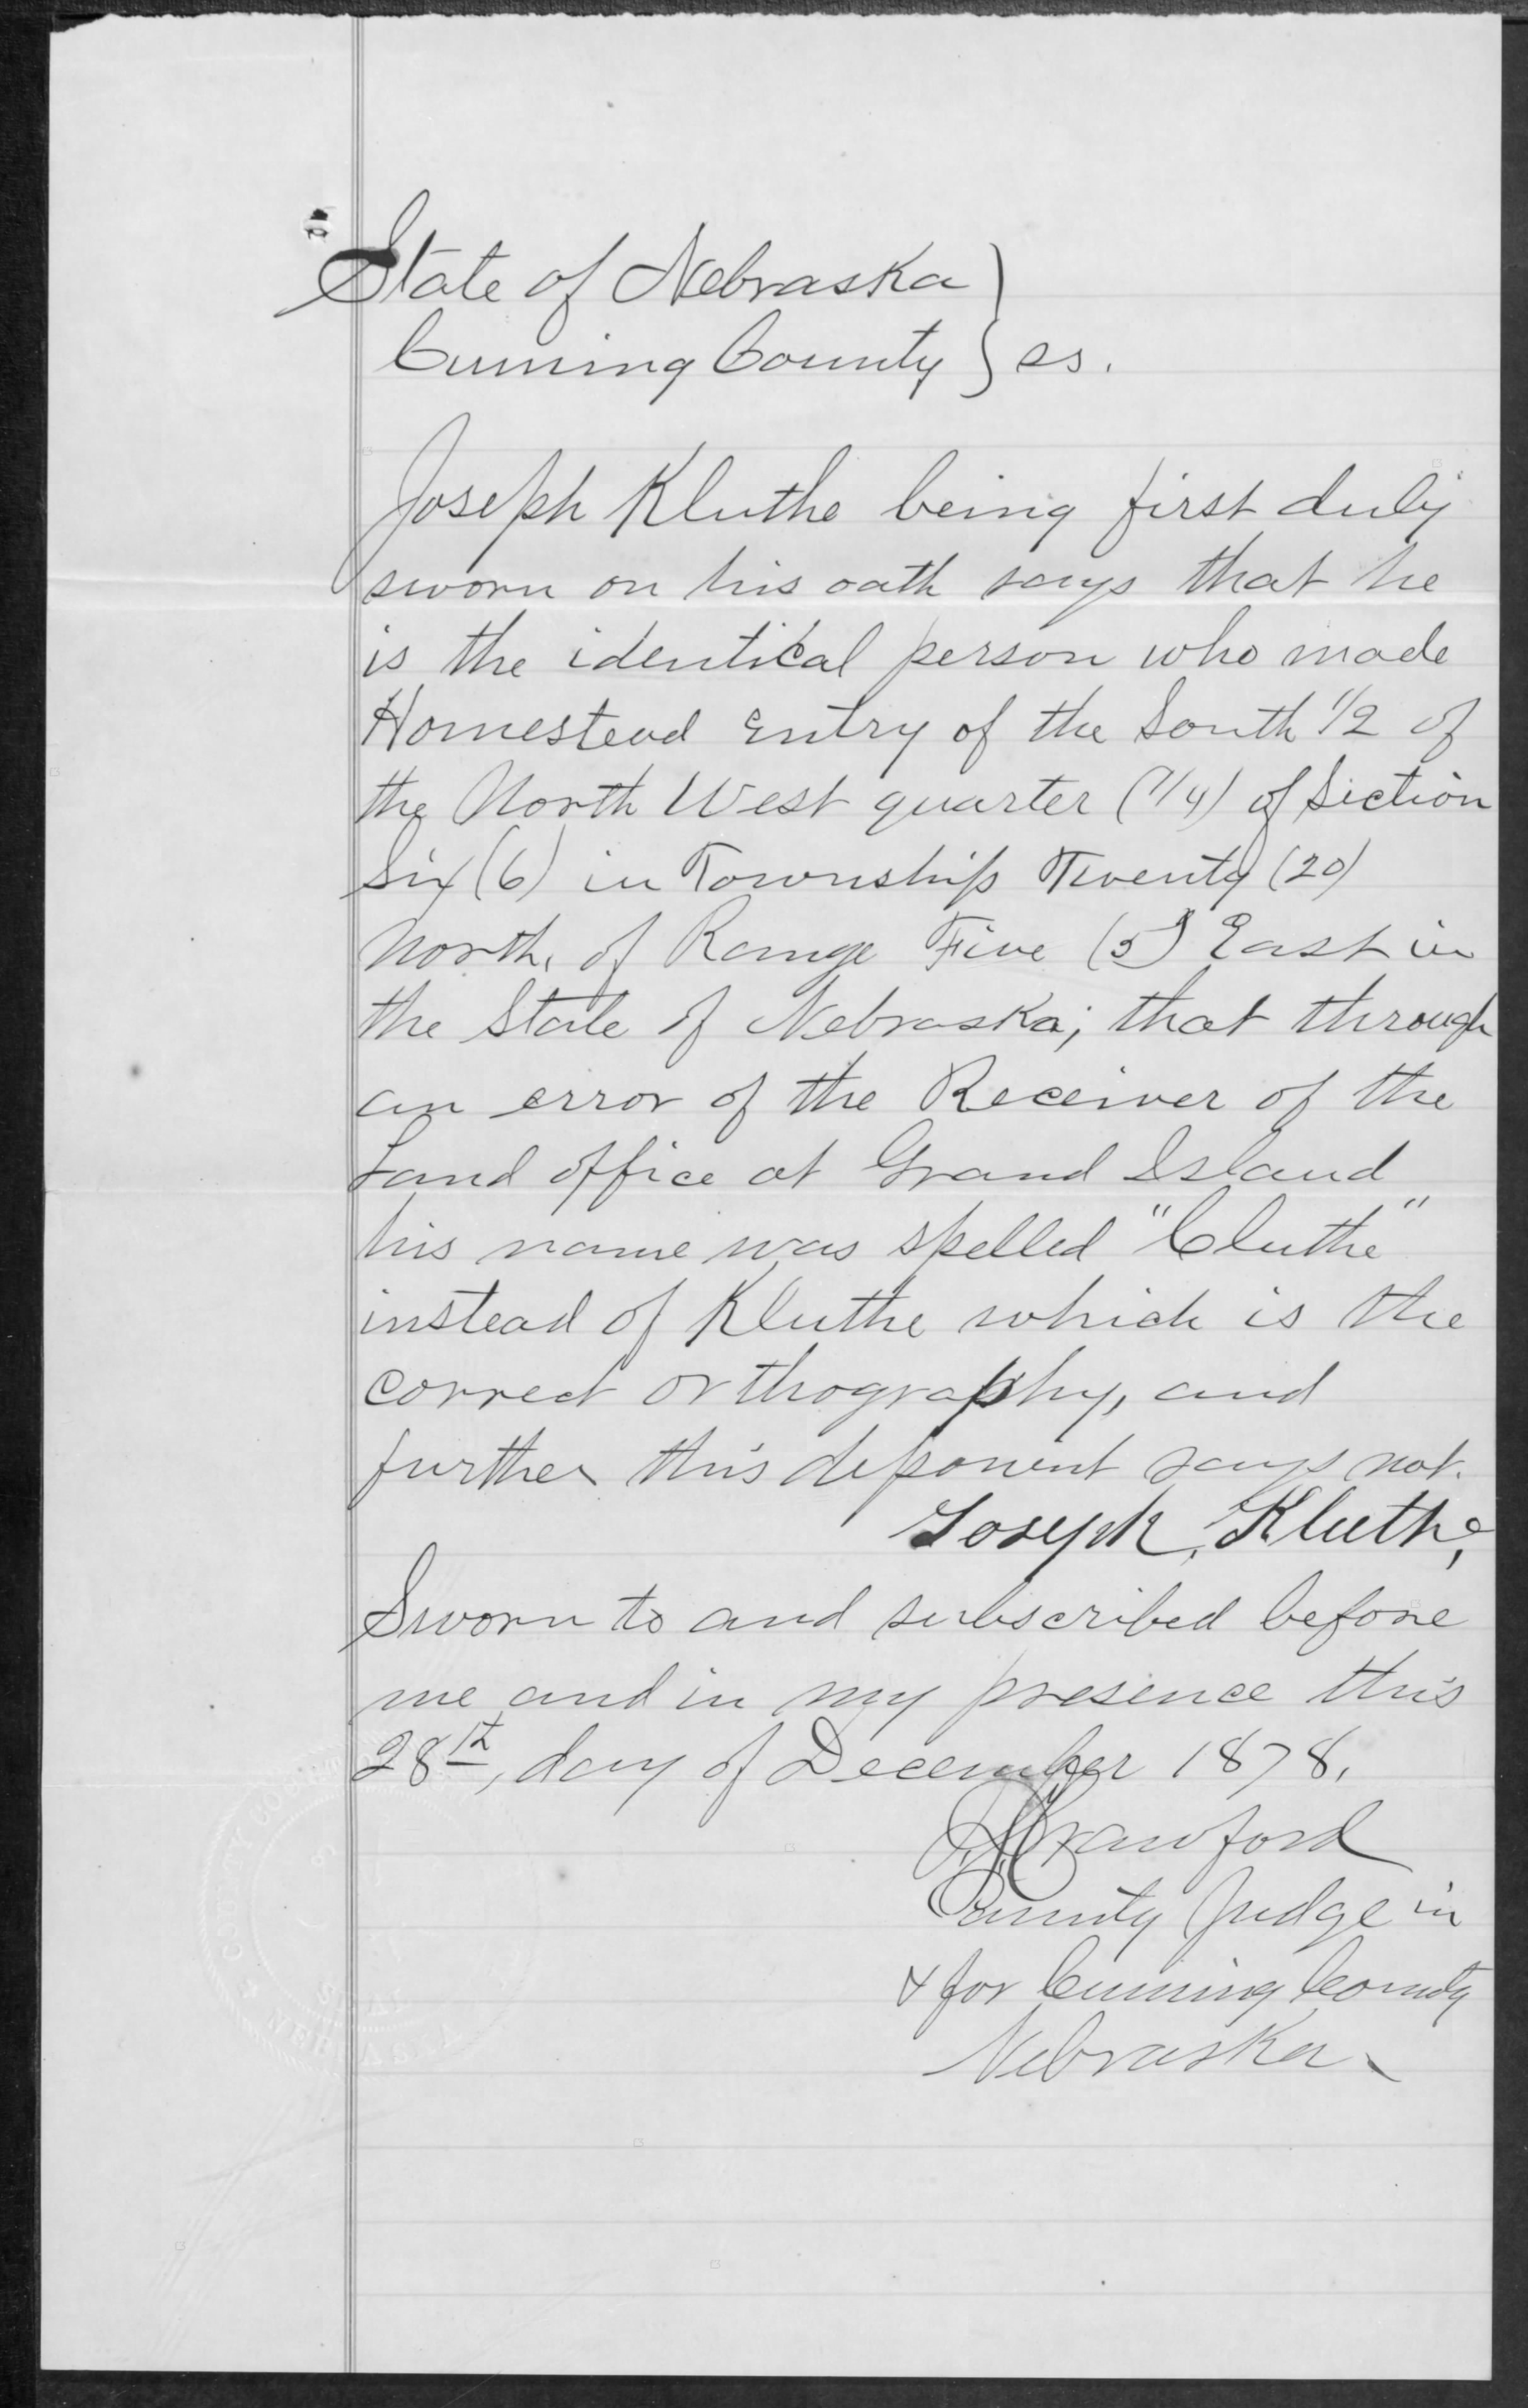 State of Nebraska }
Cuming County } ss.
Joseph Kluthe being first duly
sworn on his oath says that he
is the identical person who made
Homestead Entry of the South 1/2 of
the North West quarter (1/4) of Section
Six (6) in Township Twenty (20)
North, of Range Five (5) East in
the State of Nebraska; that through
an error of the Receiver of the
Land office at Grand Island
his name was spelled "Cluthe"
instead of Kluthe which is the
correct orthography, and
further this deponent says not.
Joseph Kluthe,
Sworn to and subscribed before
me and in my presence this
28th, day of December 1878.
Crawford
County Judge in
& for Cuming County
Nebraska